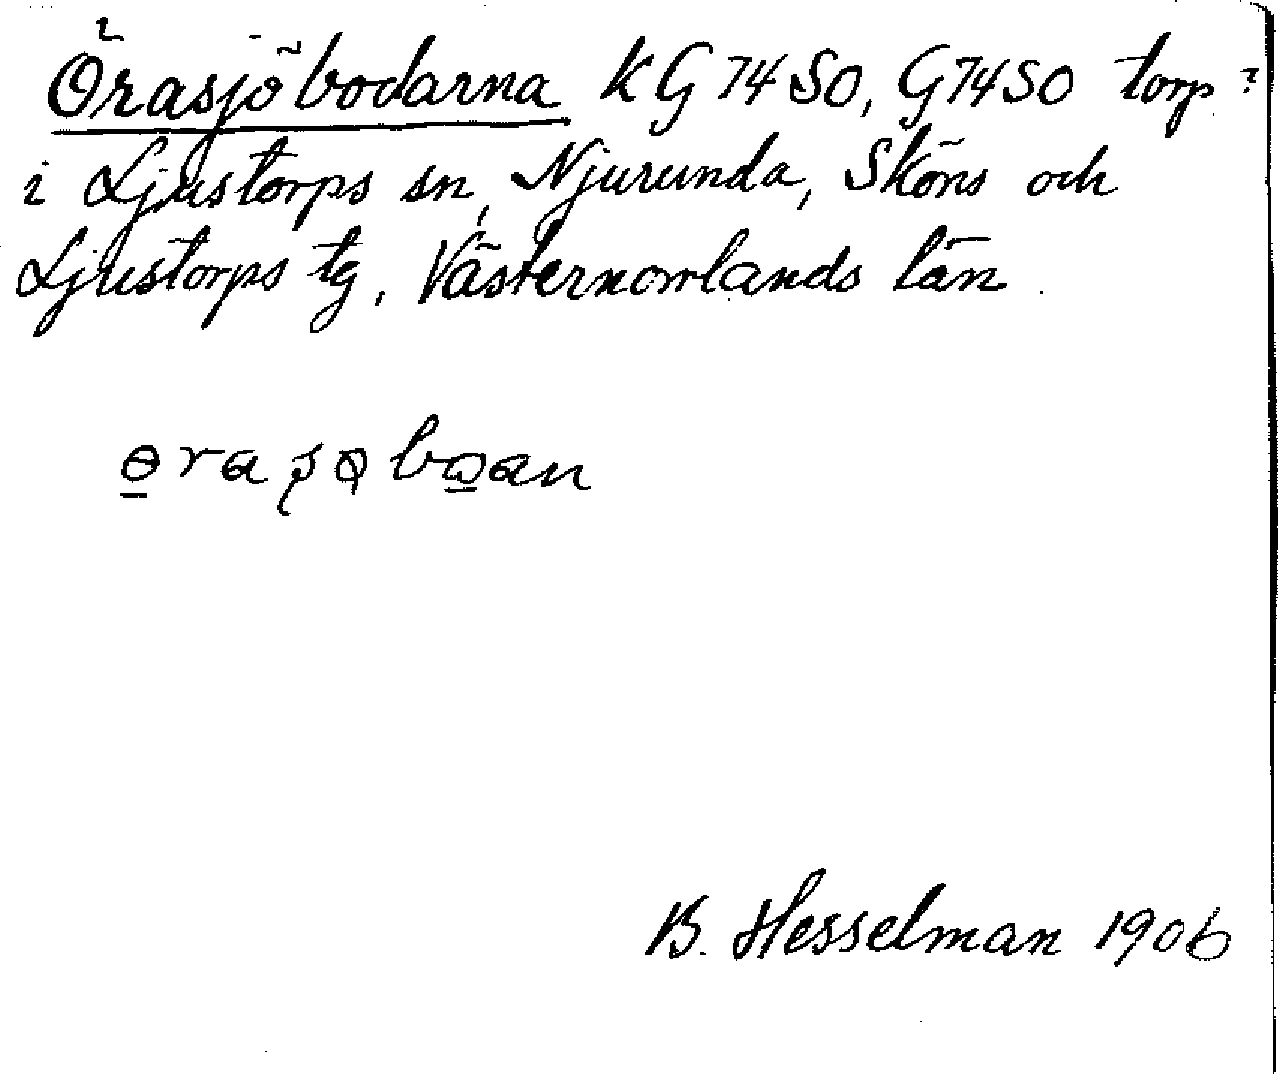 Örasjöbodarna KG 74 SO, G74SO torp?
i Ljustorps sn, Njurunda, Sköns och
Ljustorps tg, Västernorrlands län.
B. Hesselman 1906